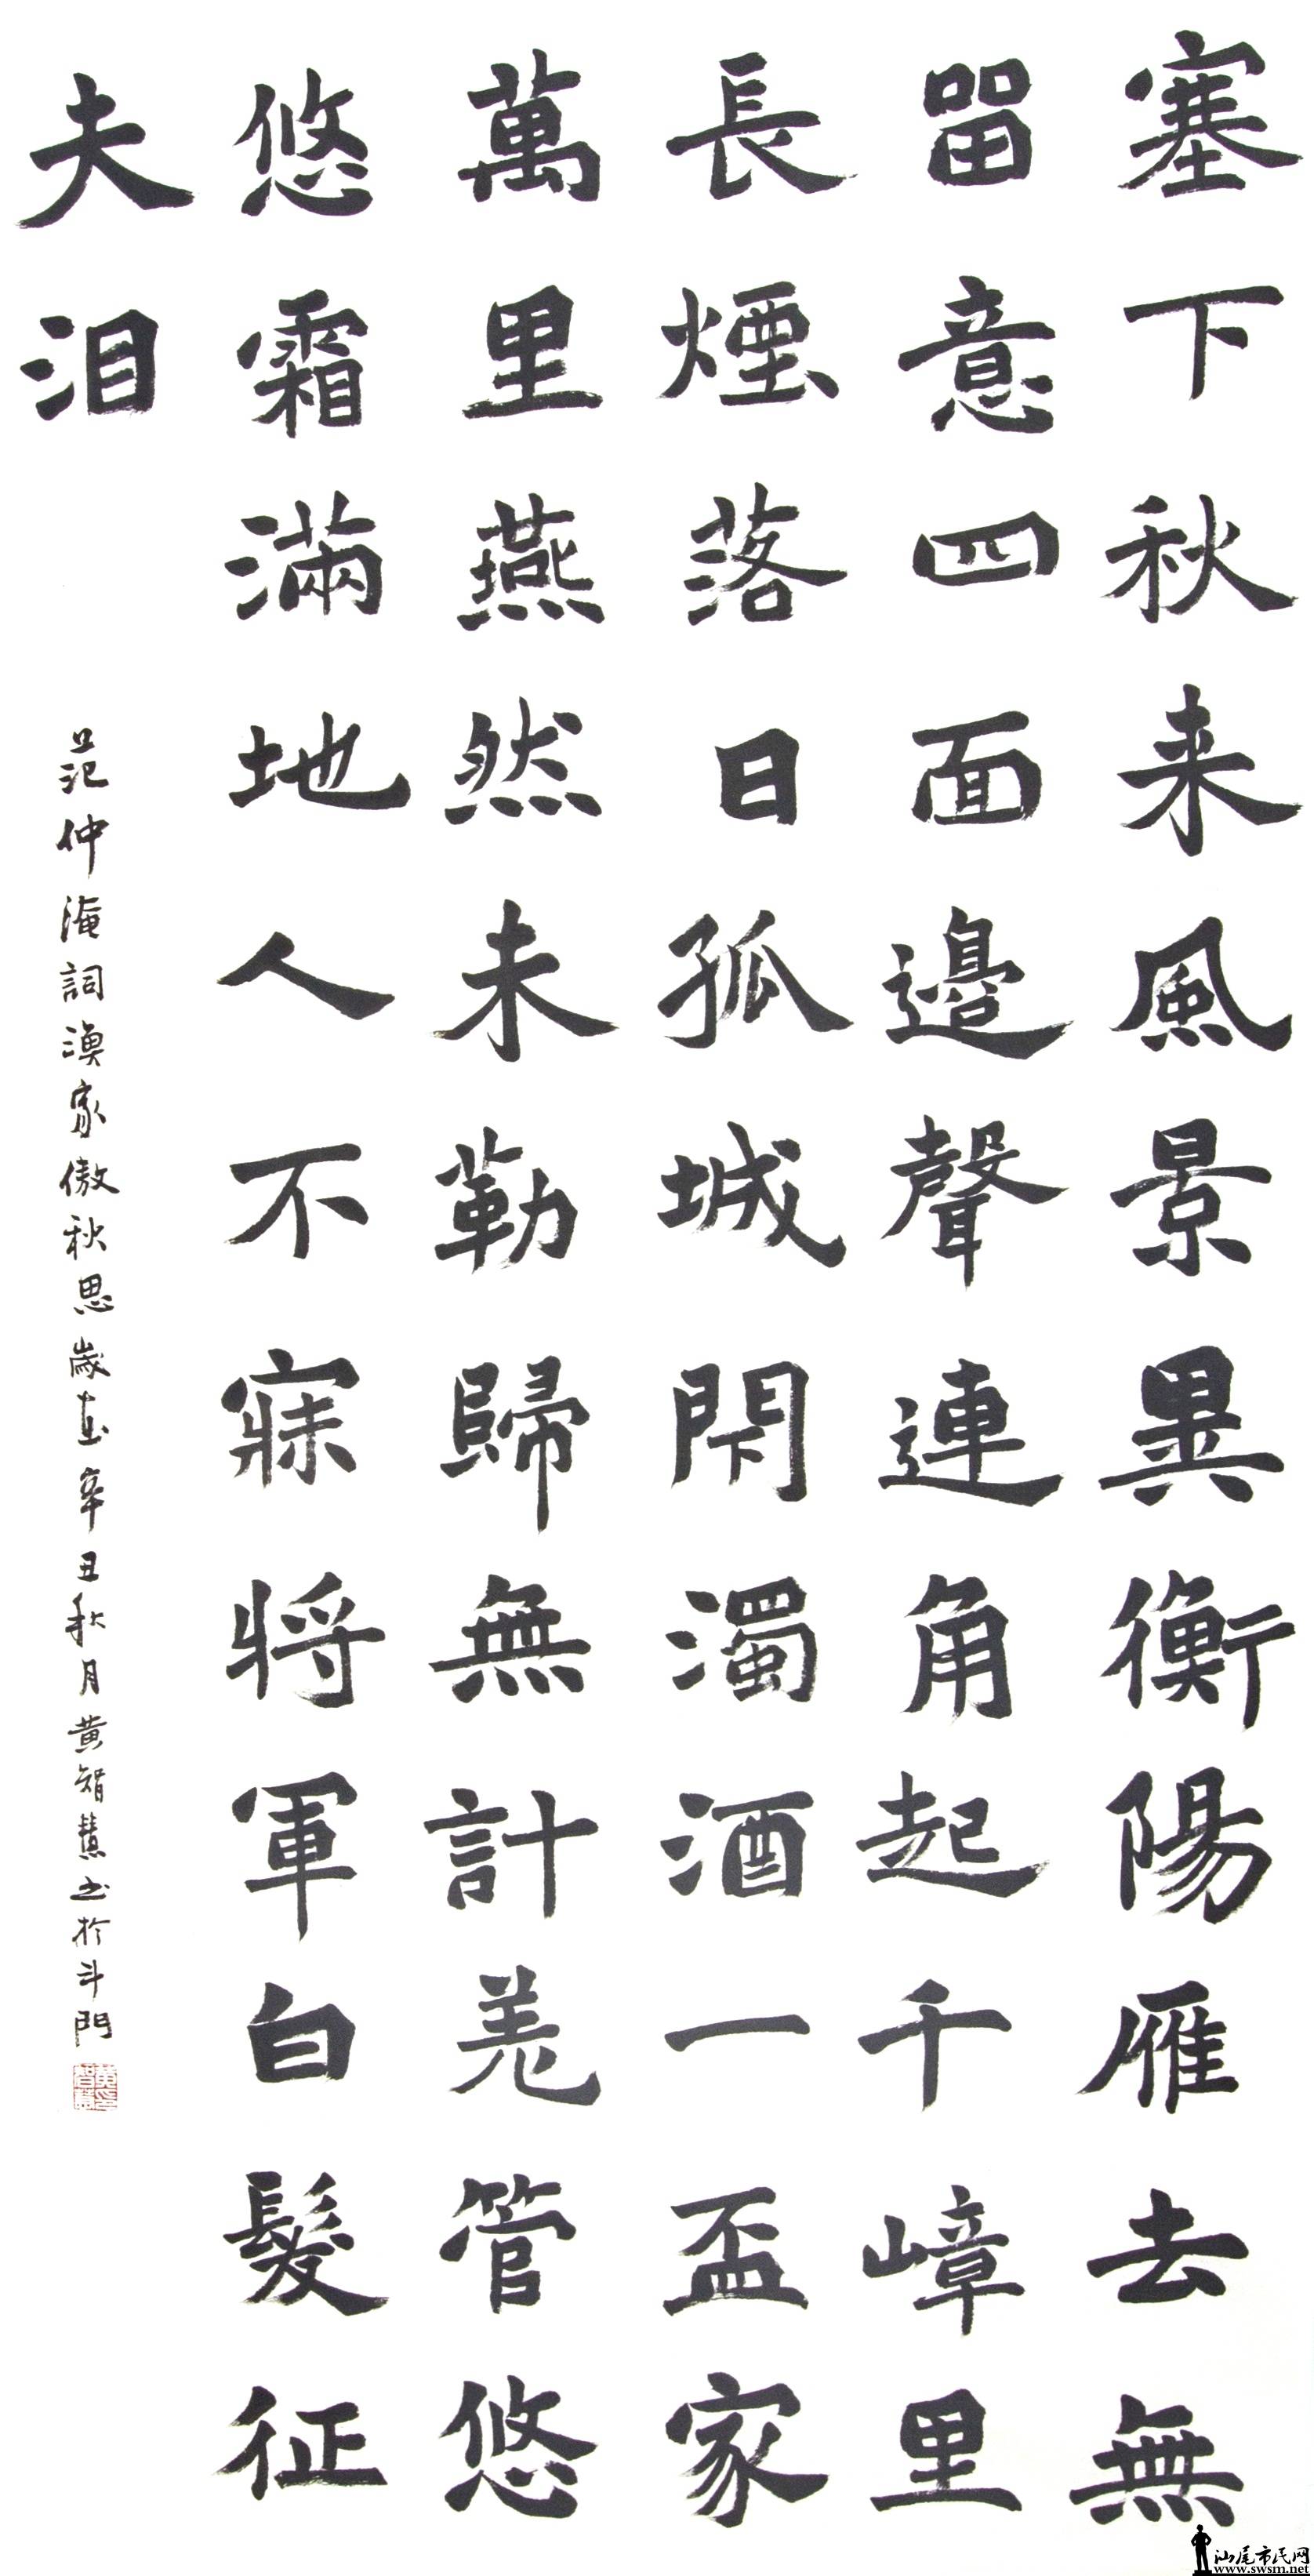 塞下秋来風景異衡陽雁去無
留意四面邊聲連角起千嶂里
長煙落日孤城閇濁酒一盃家
萬里燕然未勒歸無計羌管悠
悠霜滿地人不寐將軍白髮征
夫泪
范仲淹詞漁家傲秋思歲直辛丑秋月黄智慧书於斗門
汕尾市民网
www.swsm.net